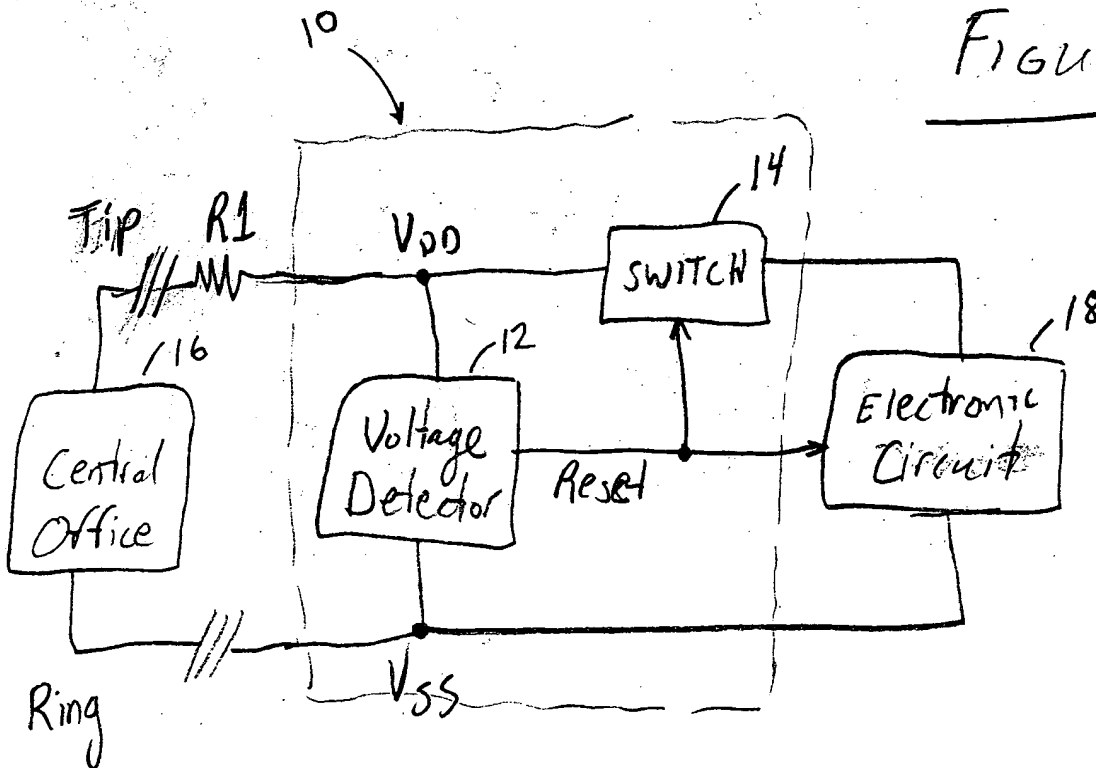 10
FIGU
14
Tip R1
VDD
SWITCH
18
16
12
Central
Office
Voltage
Detector
Reset
Electronic
Circuit
VSS
Ring